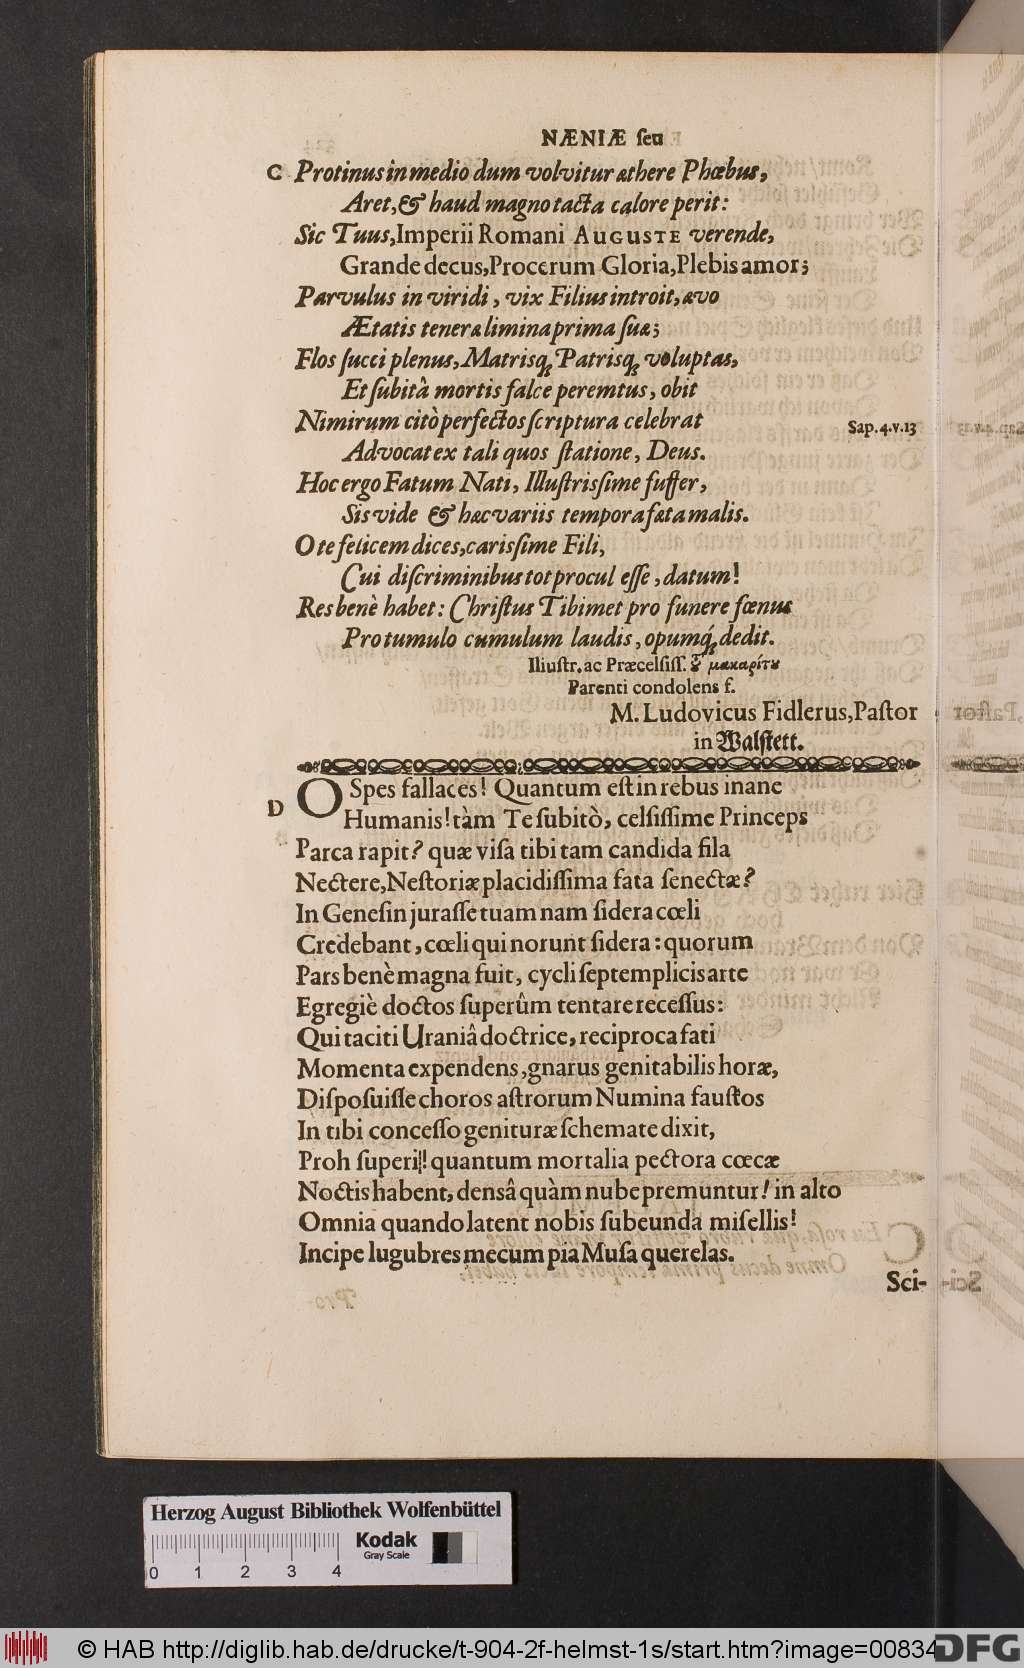 NÆNIÆ ſeu
C Protinus in medio dum volvitur æthere Phœbus,
Aret, & haud magno tacta calore perit:
Sic Tuus, Imperii Romani AUGUSTE verende,
Grande decus, Procerum Gloria, Plebis amor;
Parvulus in viridi, vix Filius introit, ævo
Ætatis teneræ limina prima ſuæ;
Flos ſucci plenus, Matrisq; Patrisq; voluptas,
Et ſubitâ mortis falce peremtus, obit
Nimirum citò perfectos ſcriptura celebrat
Sap. 4. v. 13
Advocat ex tali quos ſtatione, Deus.
Hoc ergo Fatum Nati, Illuſtrisſime ſuffer,
Sis vide & hæc variis tempora fæta malis.
O te felicem dices, carisſime Fili,
Cui diſcriminibus tot procul eſſe, datum!
Res benè habet: Chriſtus Tibimet pro funere fœnus
Pro tumulo cumulum laudis, opumq́; dedit.
Illuſtr. ac Præcelſiſſ. ȣ͂ μακαρίτȣ
Parenti condolens f.
M. Ludovicus Fidlerus, Paſtor
in Walſtett.
D
O Spes fallaces! Quantum eſt in rebus inane
Humanis! tàm Te ſubitò, celſiſſime Princeps
Parca rapit? quæ viſa tibi tam candida fila
Nectere, Neſtoriæ placidiſſima fata ſenectæ?
In Geneſin juraſſe tuam nam ſidera cœli
Credebant, cœli qui norunt ſidera: quorum
Pars benè magna fuit, cycli ſeptemplicis arte
Egregiè doctos ſuperûm tentare receſſus:
Qui taciti Uraniâ doctrice, reciproca fati
Momenta expendens, gnarus genitabilis horæ,
Diſpoſuiſſe choros aſtrorum Numina fauſtos
In tibi conceſſo genituræ ſchemate dixit,
Proh ſuperi! quantum mortalia pectora cœcæ
Noctis habent, densâ quàm nube premuntur! in alto
Omnia quando latent nobis ſubeunda miſellis!
Incipe lugubres mecum pia Muſa querelas.
Sci-
Herzog August Bibliothek Wolfenbüttel
Kodak
Gray Scale
0 1 2 3 4
© HAB http://diglib.hab.de/drucke/t-904-2f-helmst-1s/start.htm?image=00834
DFG